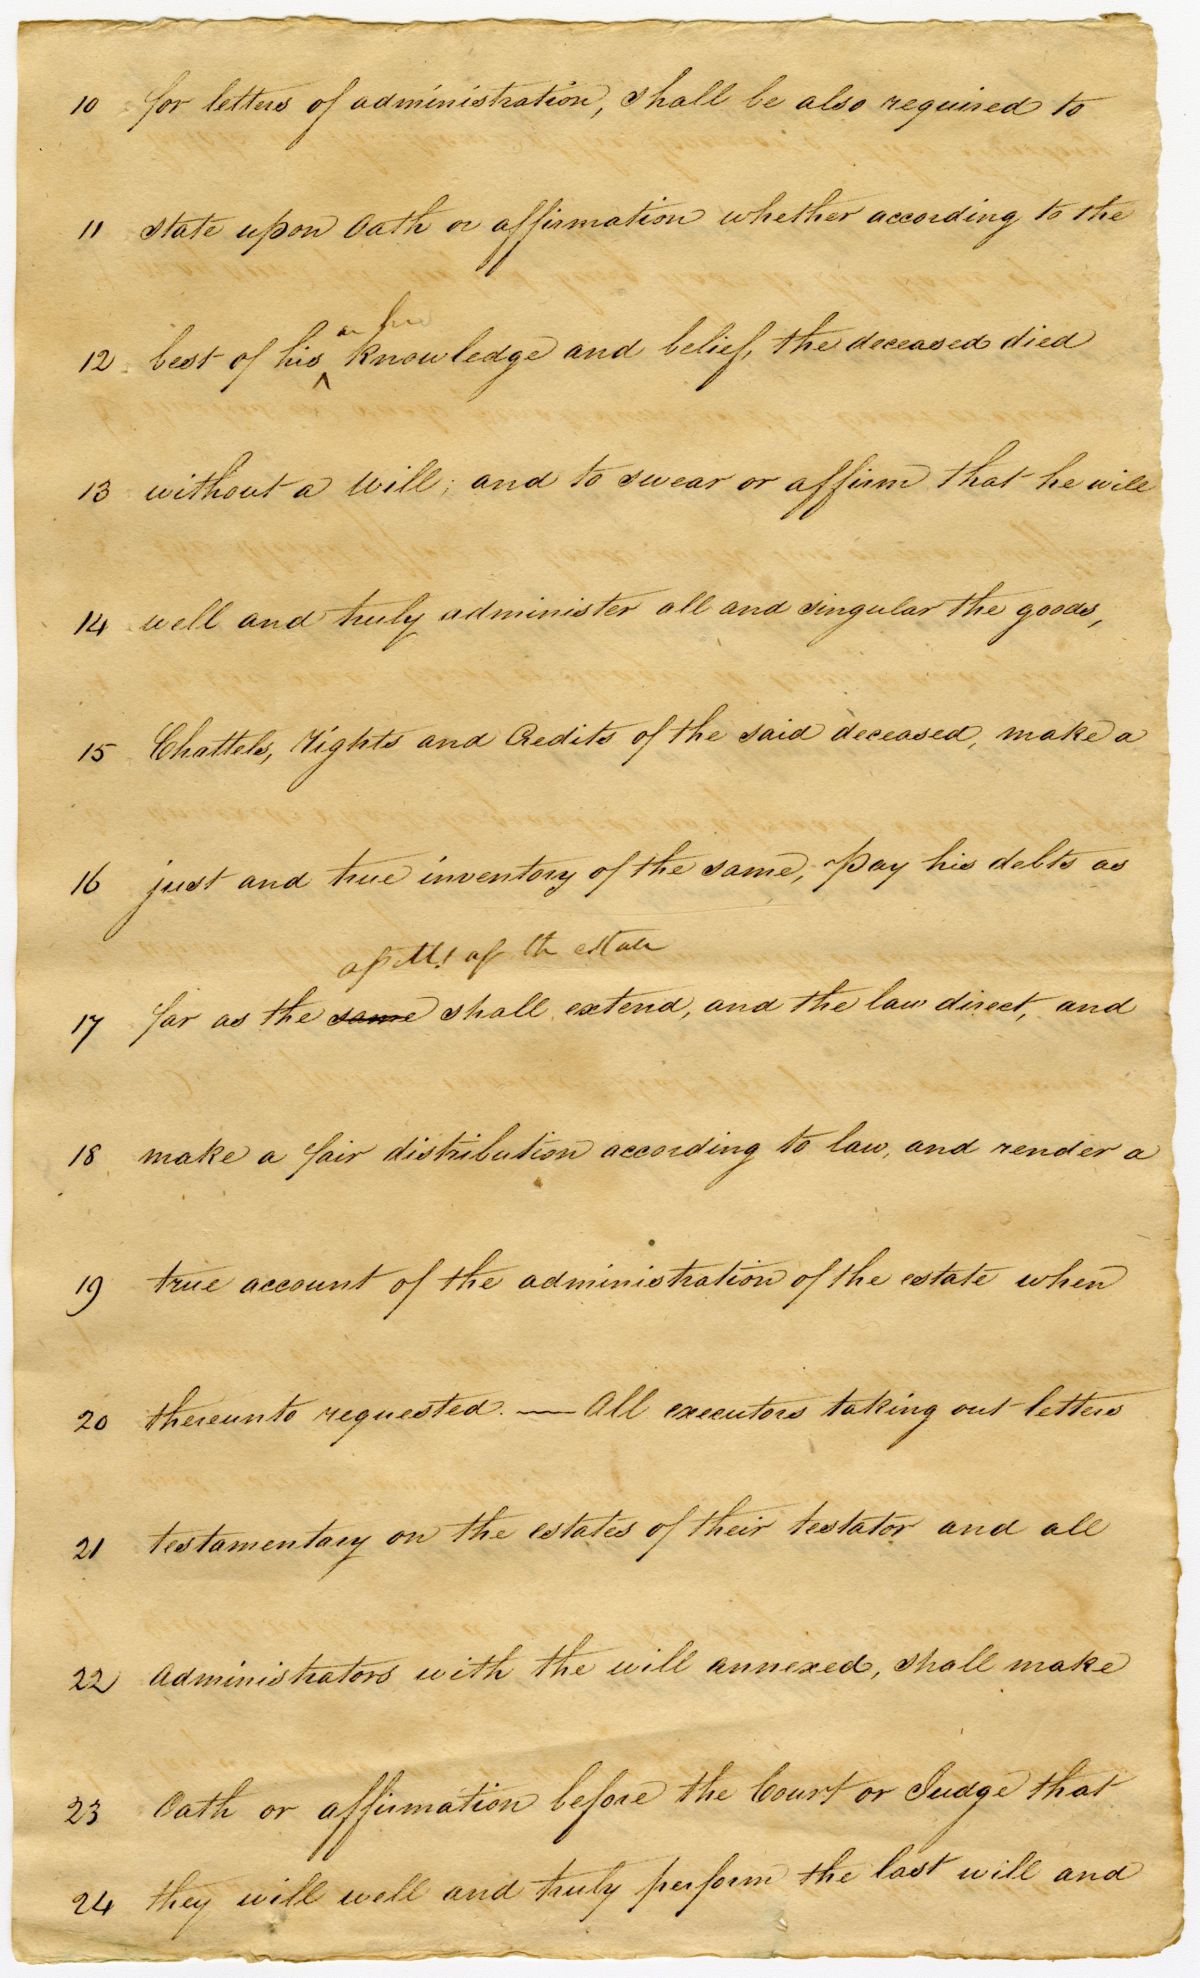 10 for letters of administration, shall be also required to
11 state upon Oath or affirmation whether according to the
or her
12 best of his ^ knowledge and belief, the deceased died
13 without a Will; and to swear or affirm that he will
14 well and truly administer all and singular the goods,
15 Chattels, rights and Credits of the said deceased, make a
16 just and true inventory of the same, pay his debts as
of the estate
17 far as the same shall extend, and the law direct, and
18 make a fair distribution according to law, and render a
19 true account of the administration of the estate when
20 thereunto requested. — All executors taking out letters
21 testamentary on the estates of their testator and all
22 Administrators with the will annexed, shall make
23 Oath or affirmation before the Court or Judge that
24 they will well and truly perform the last will and